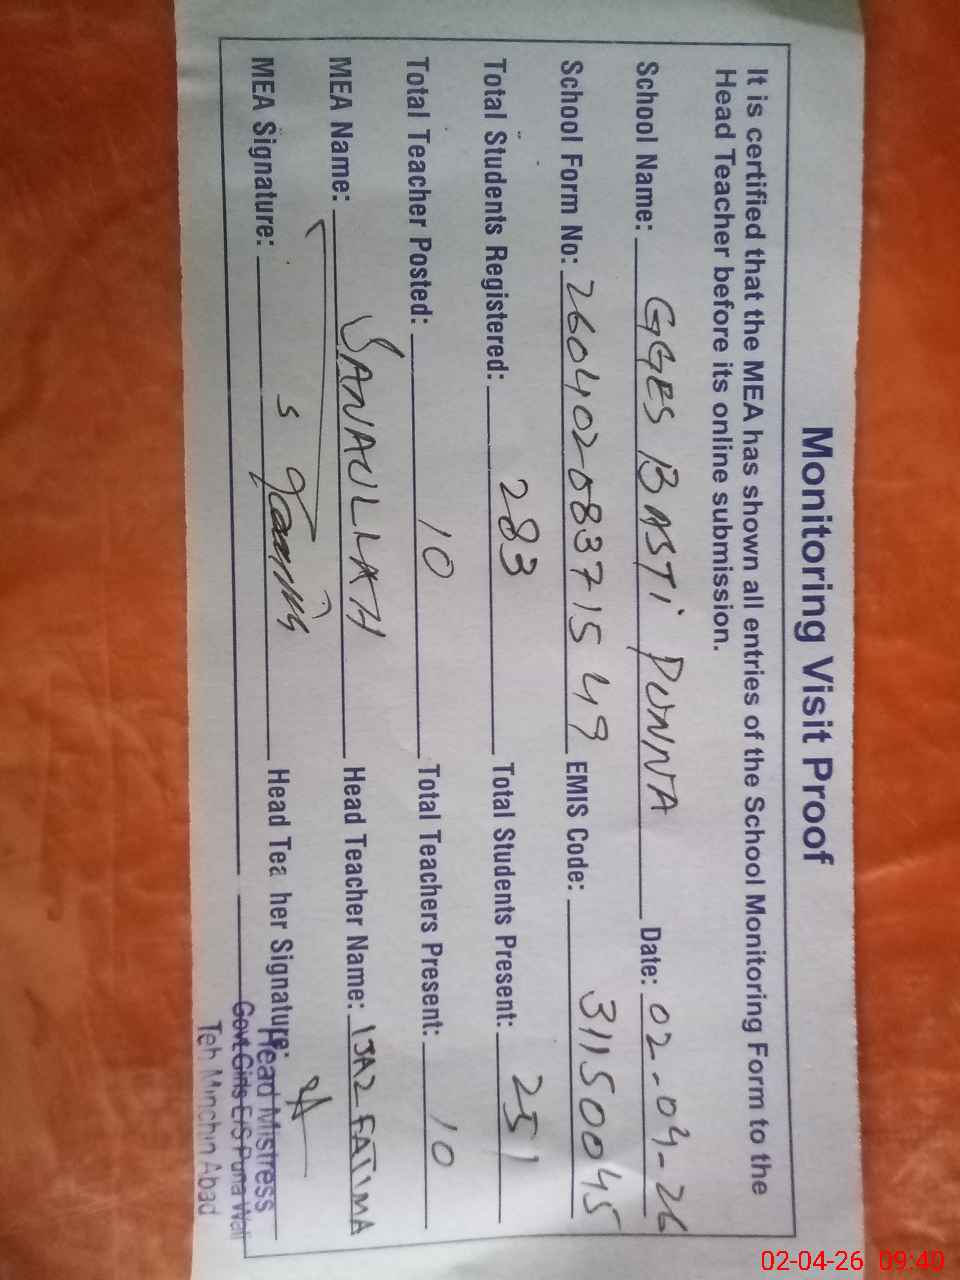 Monitoring Visit Proof
It is certified that the MEA has shown all entries of the School Monitoring Form to the
Head Teacher before its online submission.
School Name: GGES BASTi PUNNA Date: 02-04-26
School Form No: 260402083715 49 EMIS Code: 31150045
Total Students Registered: 283 Total Students Present: 251
Total Teacher Posted: 10 Total Teachers Present: 10
MEA Name: SANAULLAH Head Teacher Name: IJAZ FATIMA
MEA Signature: Head Tea her Signature:
Head Mistress
Govt Girls E/S Puna Wali
Teh Minchin Abad
02-04-26 09:40